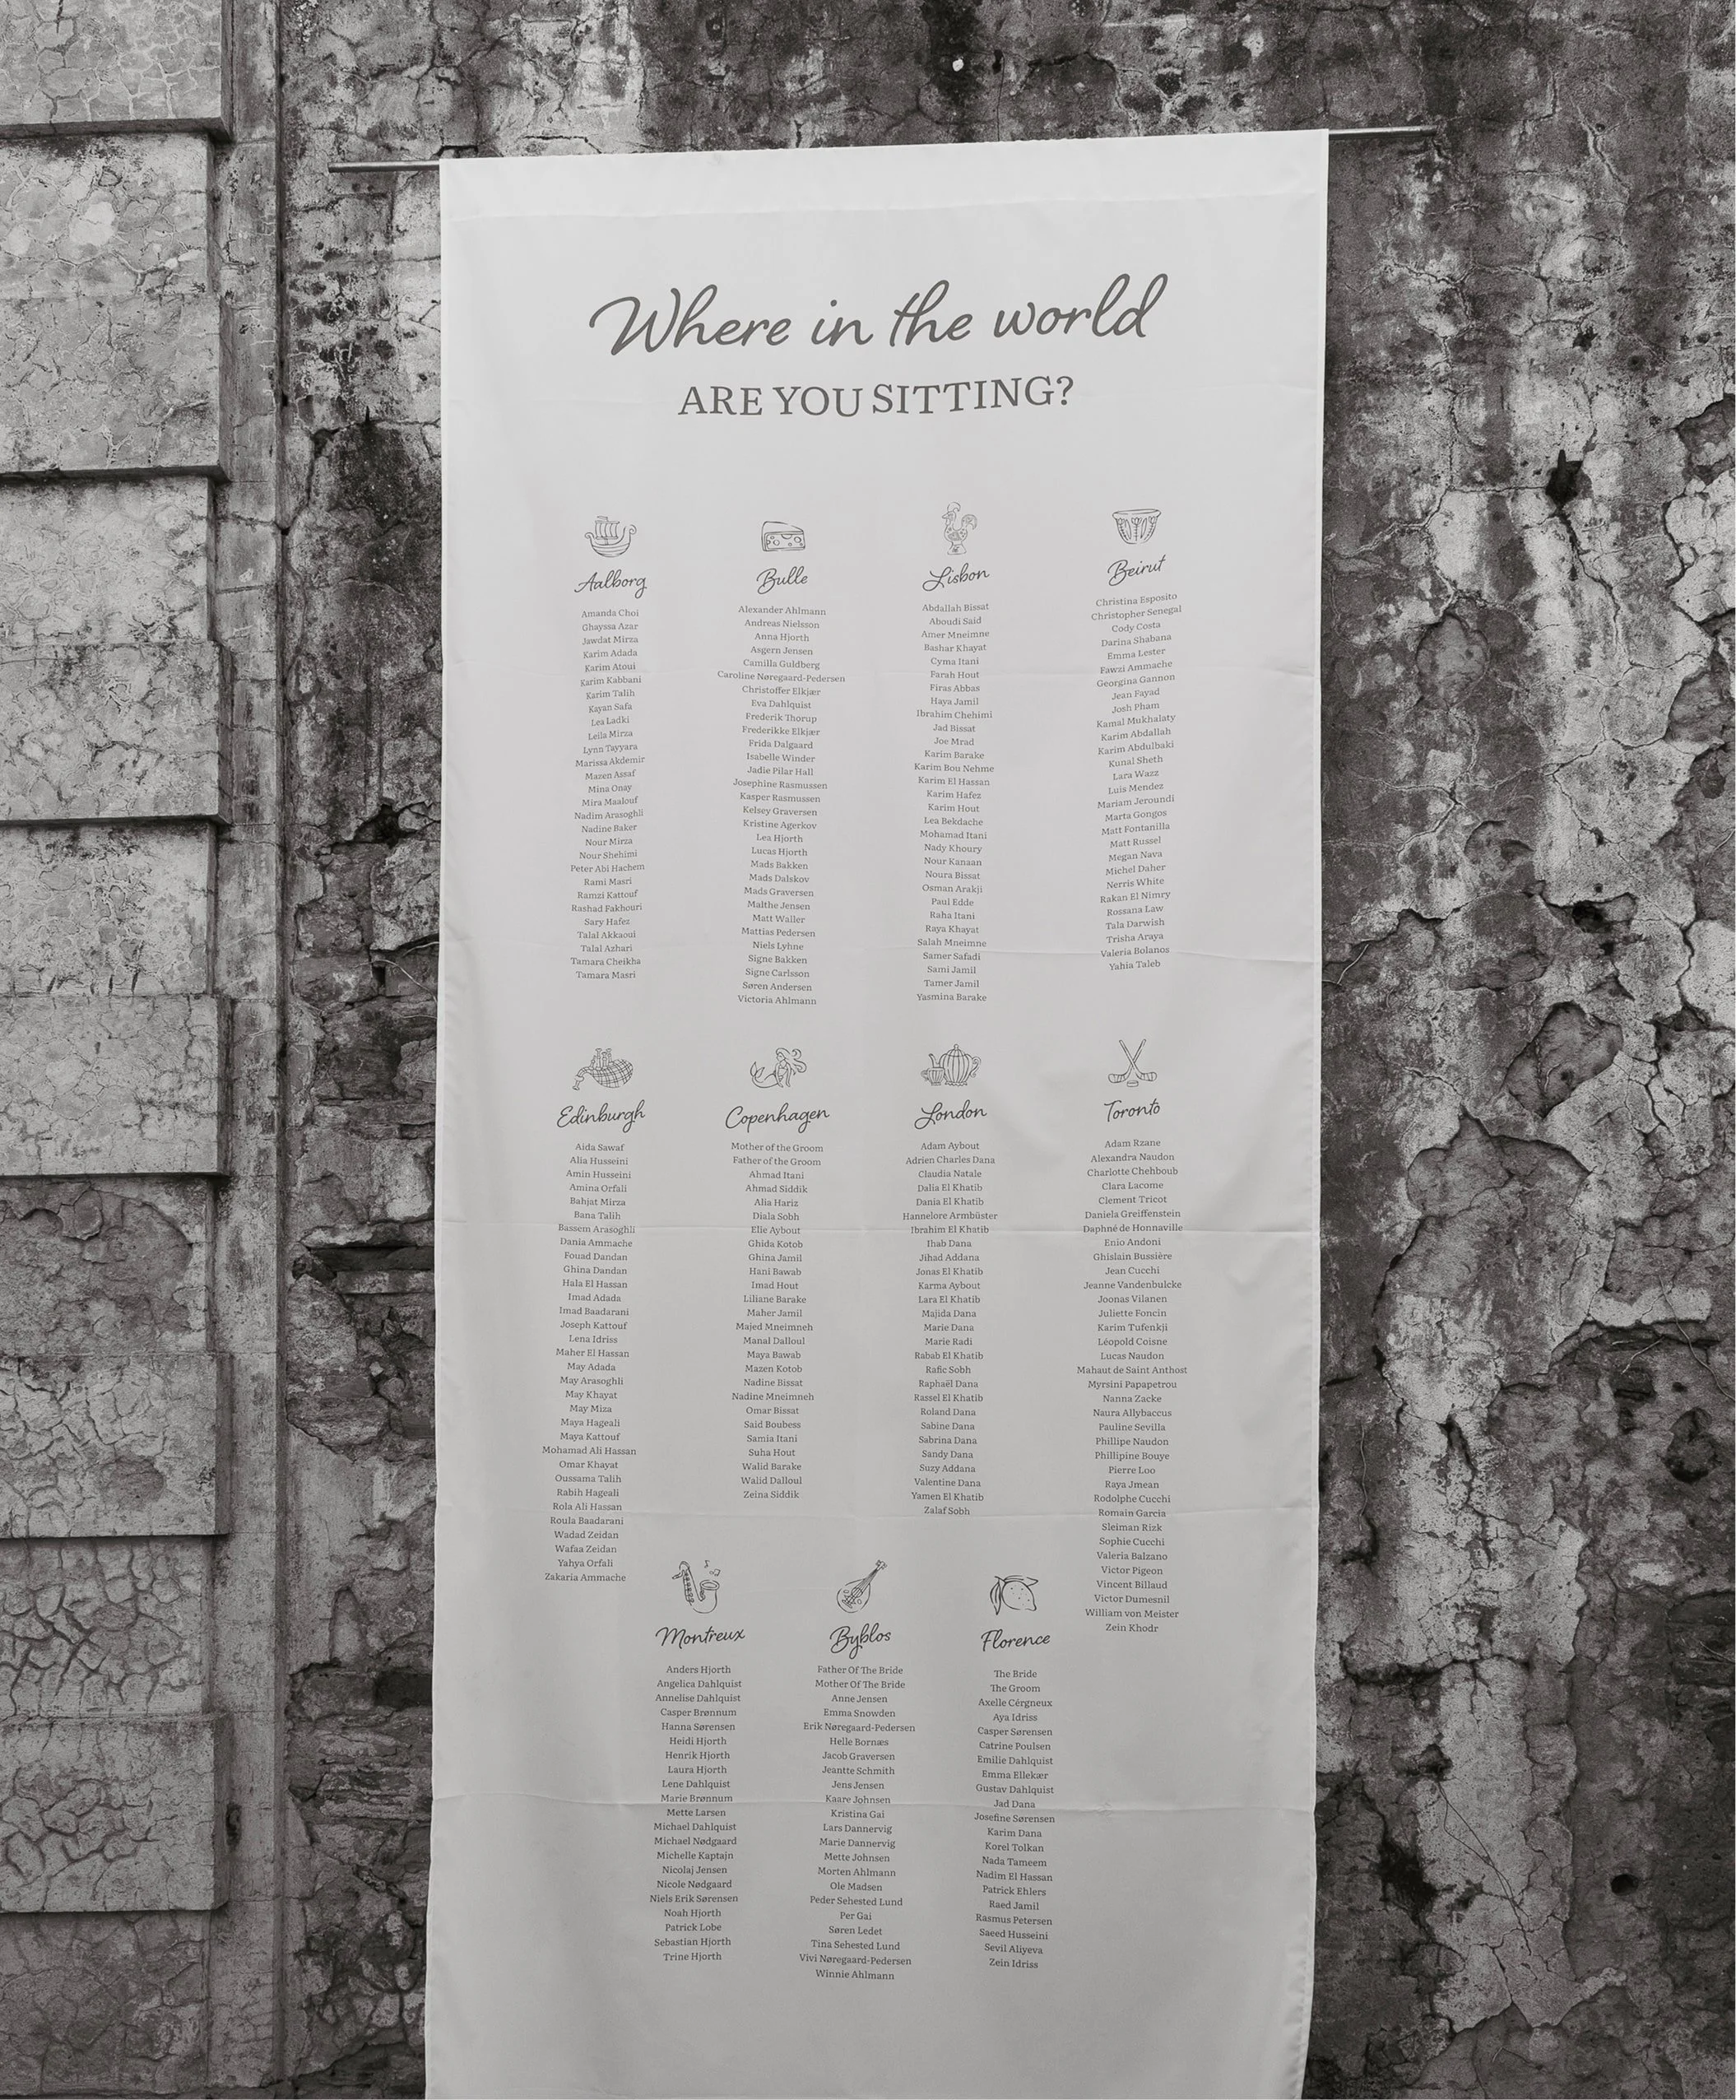 Where in the world
ARE YOU SITTING?
Aalborg
Amanda Choi
Ghayssa Azar
Jawdat Mirza
Karim Adada
Karim Atoui
Karim Kabbani
Karim Talih
Kayan Safa
Lea Ladki
Leila Mirza
Lynn Tayyara
Marissa Akdemir
Mazen Assaf
Mina Onay
Mira Maalouf
Nadim Arasoghli
Nadine Baker
Nour Mirza
Nour Shehimi
Peter Abi Hachem
Rami Masri
Ramzi Kattouf
Rashad Fakhouri
Sary Hafez
Talal Akkaoui
Talal Azhari
Tamara Cheikha
Tamara Masri
Bulle
Alexander Ahlmann
Andreas Nielsson
Anna Hjorth
Asgern Jensen
Camilla Guldberg
Caroline Nøregaard-Pedersen
Christoffer Elkjær
Eva Dahlquist
Frederik Thorup
Frederikke Elkjær
Frida Dalgaard
Isabelle Winder
Jadie Pilar Hall
Josephine Rasmussen
Kasper Rasmussen
Kelsey Graversen
Kristine Agerkov
Lea Hjorth
Lucas Hjorth
Mads Bakken
Mads Dalskov
Mads Graversen
Malthe Jensen
Matt Waller
Mattias Pedersen
Niels Lyhne
Signe Bakken
Signe Carlsson
Søren Andersen
Victoria Ahlmann
Lisbon
Abdallah Bissat
Aboudi Said
Amer Mneimne
Bashar Khayat
Cyma Itani
Farah Hout
Firas Abbas
Haya Jamil
Ibrahim Chehimi
Jad Bissat
Joe Mrad
Karim Barake
Karim Bou Nehme
Karim El Hassan
Karim Hafez
Karim Hout
Lea Bekdache
Mohamad Itani
Nady Khoury
Nour Kanaan
Noura Bissat
Osman Arakji
Paul Edde
Raha Itani
Raya Khayat
Salah Mneimne
Samer Safadi
Sami Jamil
Tamer Jamil
Yasmina Barake
Beirut
Christina Esposito
Christopher Senegal
Cody Costa
Darina Shabana
Emma Lester
Fawzi Ammache
Georgina Gannon
Jean Fayad
Josh Pham
Kamal Mukhalaty
Karim Abdallah
Karim Abdulbaki
Kunal Sheth
Lara Wazz
Luis Mendez
Mariam Jeroundi
Marta Gongos
Matt Fontanilla
Matt Russel
Megan Nava
Michel Daher
Nerris White
Rakan El Nimry
Rossana Law
Tala Darwish
Trisha Araya
Valeria Bolanos
Yahia Taleb
Edinburgh
Aida Sawaf
Alia Husseini
Amin Husseini
Amina Orfali
Bahjat Mirza
Bana Talih
Bassem Arasoghli
Dania Ammache
Fouad Dandan
Ghina Dandan
Hala El Hassan
Imad Adada
Imad Baadarani
Joseph Kattouf
Lena Idriss
Maher El Hassan
May Adada
May Arasoghli
May Khayat
May Miza
Maya Hageali
Maya Kattouf
Mohamad Ali Hassan
Omar Khayat
Oussama Talih
Rabih Hageali
Rola Ali Hassan
Roula Baadarani
Wadad Zeidan
Wafaa Zeidan
Yahya Orfali
Zakaria Ammache
Copenhagen
Mother of the Groom
Father of the Groom
Ahmad Itani
Ahmad Siddik
Alia Hariz
Diala Sobh
Elie Aybout
Ghida Kotob
Ghina Jamil
Hani Bawab
Imad Hout
Liliane Barake
Maher Jamil
Majed Mneimneh
Manal Dalloul
Maya Bawab
Mazen Kotob
Nadine Bissat
Nadine Mneimneh
Omar Bissat
Said Boubess
Samia Itani
Suha Hout
Walid Barake
Walid Dalloul
Zeina Siddik
London
Adam Aybout
Adrien Charles Dana
Claudia Natale
Dalia El Khatib
Dania El Khatib
Hannelore Armbüster
Ibrahim El Khatib
Ihab Dana
Jihad Addana
Jonas El Khatib
Karma Aybout
Lara El Khatib
Majida Dana
Marie Dana
Marie Radi
Rabab El Khatib
Rafic Sobh
Raphaël Dana
Rassel El Khatib
Roland Dana
Sabine Dana
Sabrina Dana
Sandy Dana
Suzy Addana
Valentine Dana
Yamen El Khatib
Zalaf Sobh
Toronto
Adam Rzane
Alexandra Naudon
Charlotte Chehboub
Clara Lacome
Clement Tricot
Daniela Greiffenstein
Daphné de Honnaville
Enio Andoni
Ghislain Bussière
Jean Cucchi
Jeanne Vandenbulcke
Joonas Vilanen
Juliette Foncin
Karim Tufenkji
Léopold Coisne
Lucas Naudon
Mahaut de Saint Anthost
Myrsini Papapetrou
Nanna Zacke
Naura Allybaccus
Pauline Sevilla
Phillipe Naudon
Phillipine Bouye
Pierre Loo
Raya Jmean
Rodolphe Cucchi
Romain Garcia
Sleiman Rizk
Sophie Cucchi
Valeria Balzano
Victor Pigeon
Vincent Billaud
Victor Dumesnil
William von Meister
Zein Khodr
Montreux
Anders Hjorth
Angelica Dahlquist
Annelise Dahlquist
Casper Brønnum
Hanna Sørensen
Heidi Hjorth
Henrik Hjorth
Laura Hjorth
Lene Dahlquist
Marie Brønnum
Mette Larsen
Michael Dahlquist
Michael Nødgaard
Michelle Kaptajn
Nicolaj Jensen
Nicole Nødgaard
Niels Erik Sørensen
Noah Hjorth
Patrick Lobe
Sebastian Hjorth
Trine Hjorth
Byblos
Father Of The Bride
Mother Of The Bride
Anne Jensen
Emma Snowden
Erik Nøregaard-Pedersen
Helle Bornæs
Jacob Graversen
Jeantte Schmith
Jens Jensen
Kaare Johnsen
Kristina Gai
Lars Dannervig
Marie Dannervig
Mette Johnsen
Morten Ahlmann
Ole Madsen
Peder Sehested Lund
Per Gai
Søren Ledet
Tina Sehested Lund
Vivi Nøregaard-Pedersen
Winnie Ahlmann
Florence
The Bride
The Groom
Axelle Cérgneux
Aya Idriss
Casper Sørensen
Catrine Poulsen
Emilie Dahlquist
Emma Ellekær
Gustav Dahlquist
Jad Dana
Josefine Sørensen
Karim Dana
Korel Tolkan
Nada Tameem
Nadim El Hassan
Patrick Ehlers
Raed Jamil
Rasmus Petersen
Saeed Husseini
Sevil Aliyeva
Zein Idriss